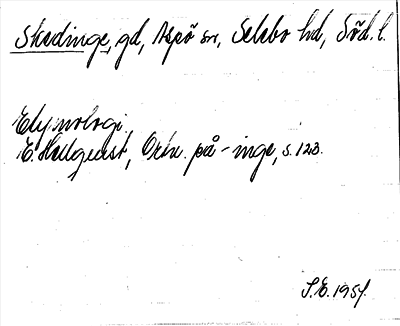 Skedinge, gd, Aspö sn, Selebo hd, Söd. l.
Etymologi.
E. Hellquist, Ortn. på -inge, s. 123.
S.E. 1954.